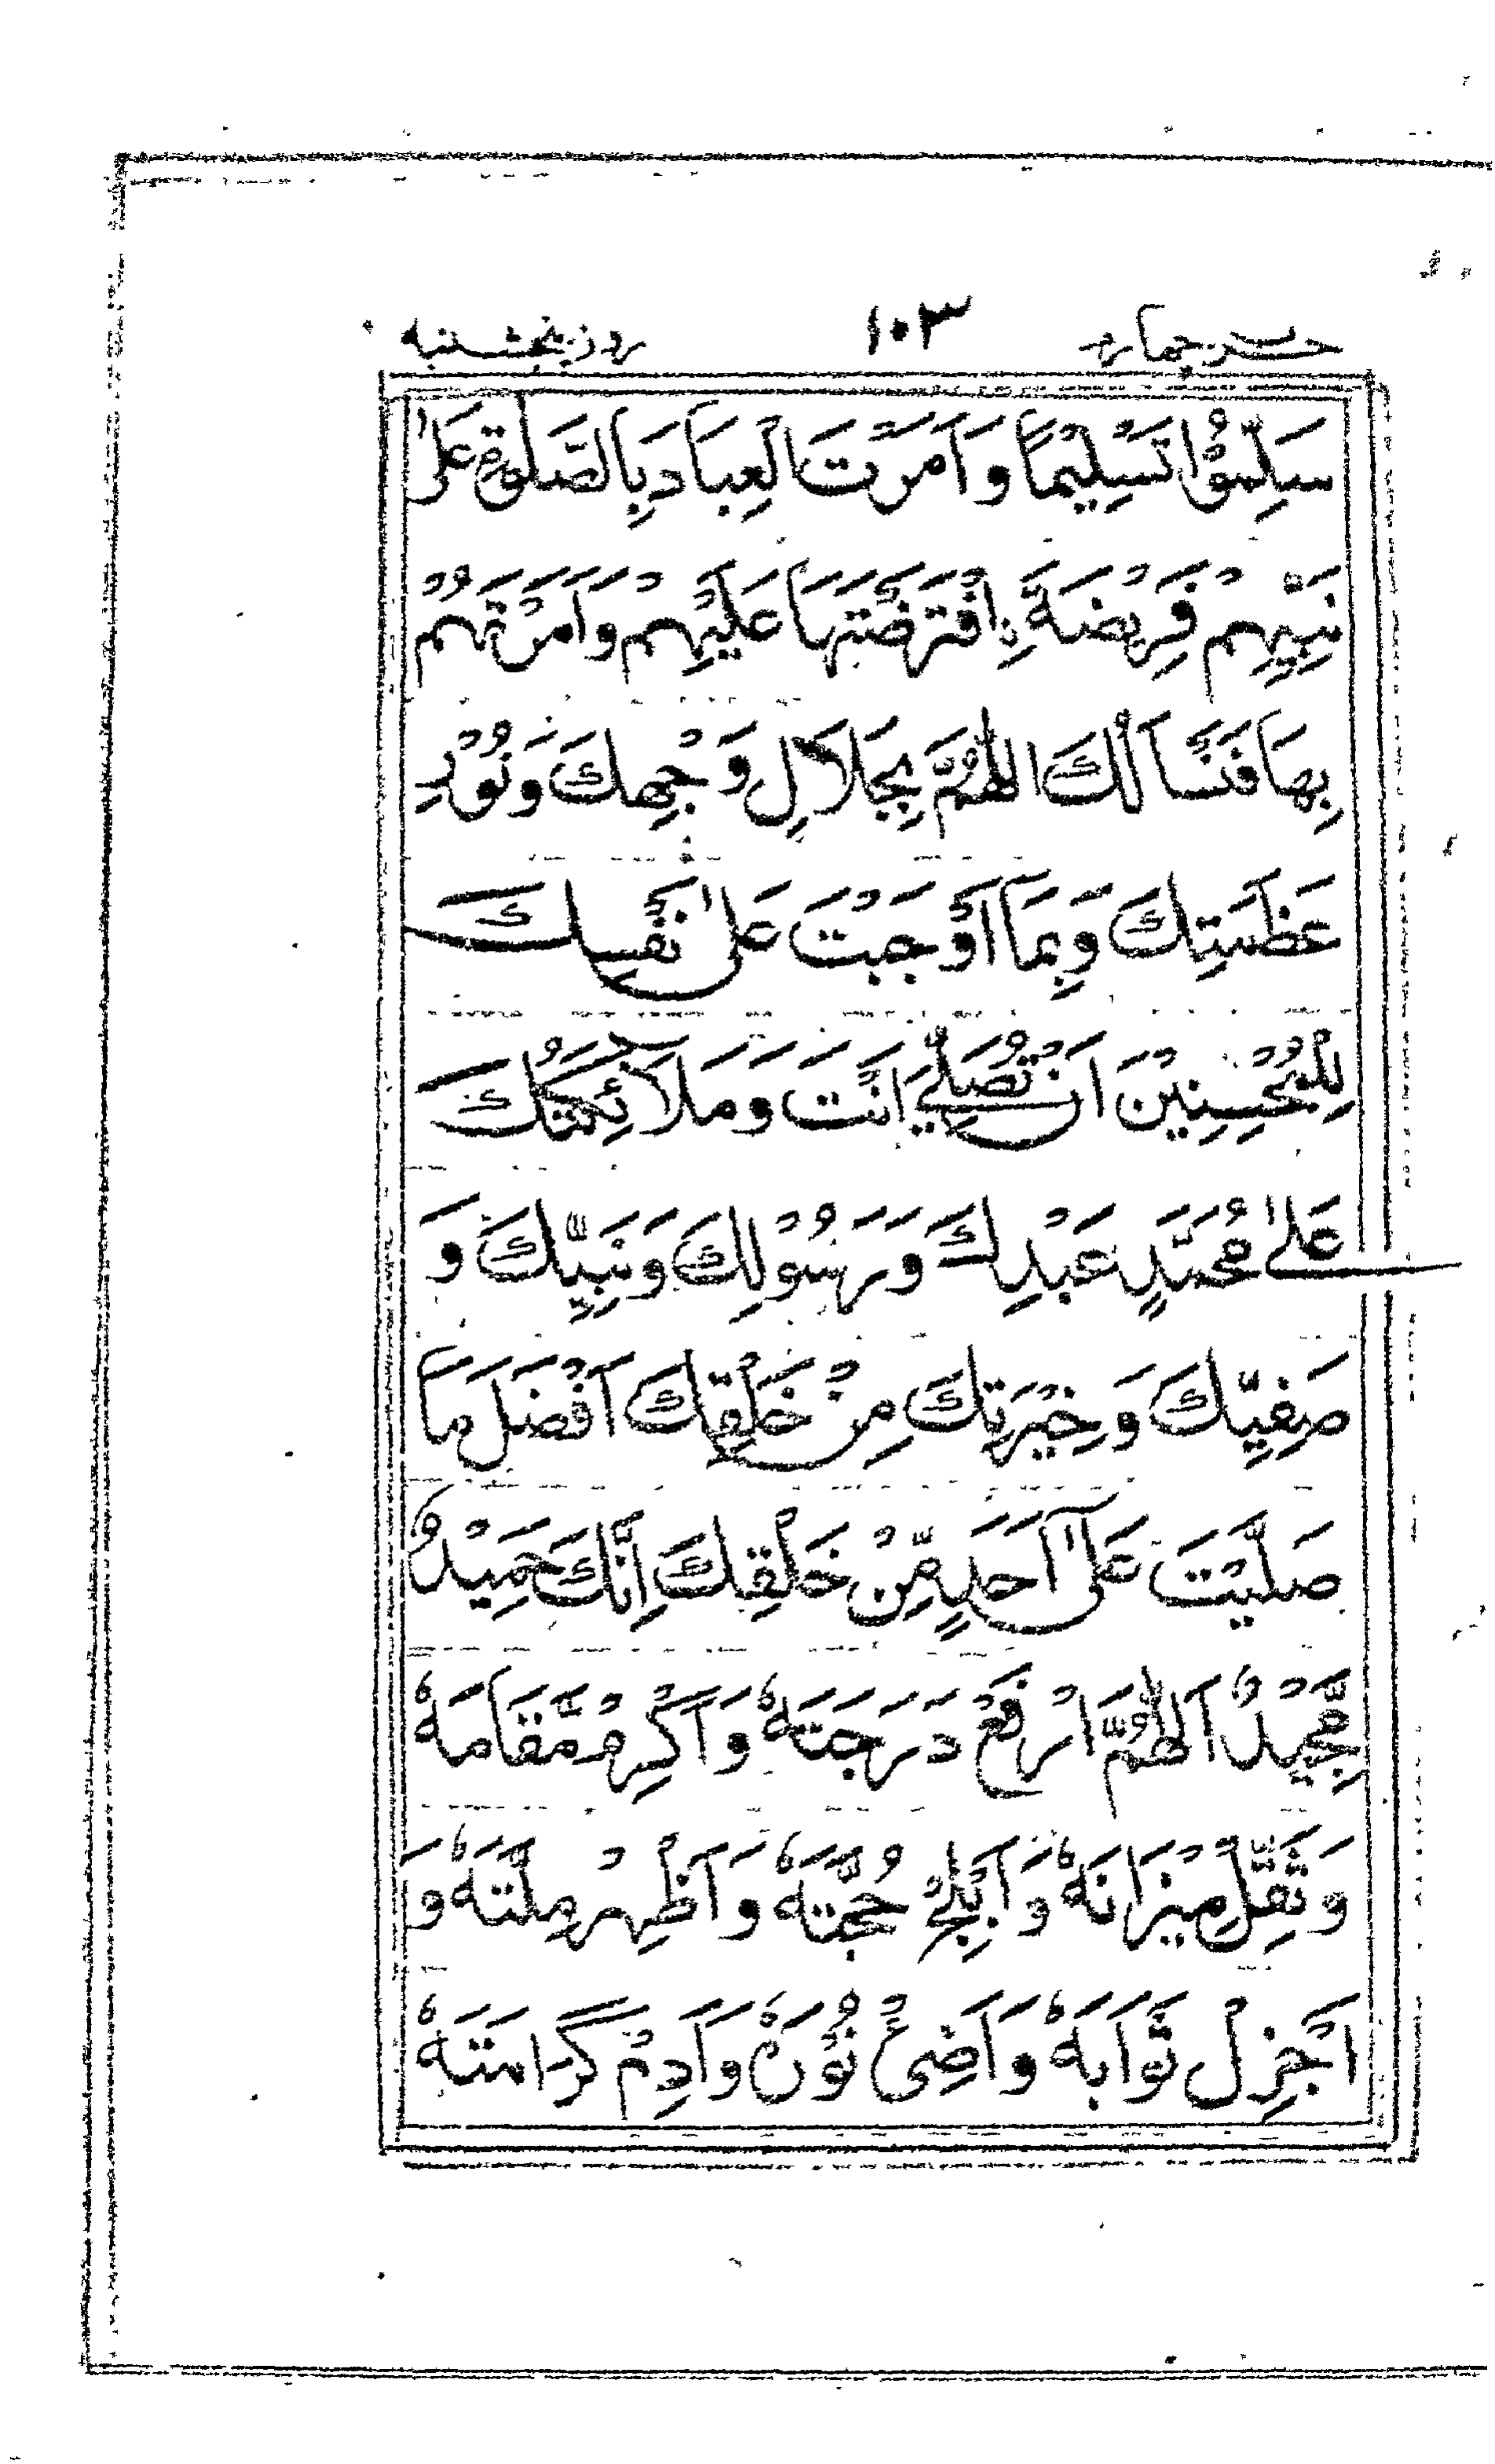 حزب چهارم ۱۰۳ روز پنجشنبه
سَلِّمُوْا تَسْلِيْمًا وَاَمَرْتَ الْعِبَادَ بِالصَّلٰوةِ عَلٰى
نَبِيِّهِمْ فَرِيْضَةَ ِۨافْتَرَضْتَهَا عَلَيْهِمْ وَاَمَرْتَهُمْ
بِهَا فَنَسْأَلُكَ اللّٰهُمَّ بِجَلَالِ وَجْهِكَ وَنُوْرِ
عَظَمَتِكَ وَبِمَا اَوْجَبْتَ عَلٰى نَفْسِكَ
لِلْمُحْسِنِيْنَ اَنْ تُصَلِّيَ اَنْتَ وَمَلَآئِكَتُكَ
عَلٰى مُحَمَّدٍ عَبْدِكَ وَرَسُوْلِكَ وَنَبِيِّكَ وَ
صَفِيِّكَ وَخِيْرَتِكَ مِنْ خَلْقِكَ اَفْضَلَ مَا
صَلَّيْتَ عَلٰٓى اَحَدٍ مِّنْ خَلْقِكَ اِنَّكَ حَمِيْدٌ
مَّجِيْدٌ اَللّٰهُمَّ ارْفَعْ دَرَجَتَهٗ وَاَكْرِمْ مَّقَامَهٗ
وَثَقِّلْ مِيْزَانَهٗ وَاَبْلِجْ حُجَّتَهٗ وَاَظْهِرْ مِلَّتَهٗ وَ
اَجْزِلْ ثَوَابَهٗ وَاَضِئْ نُوْرَهٗ وَاَدِمْ كَرَامَتَهٗ